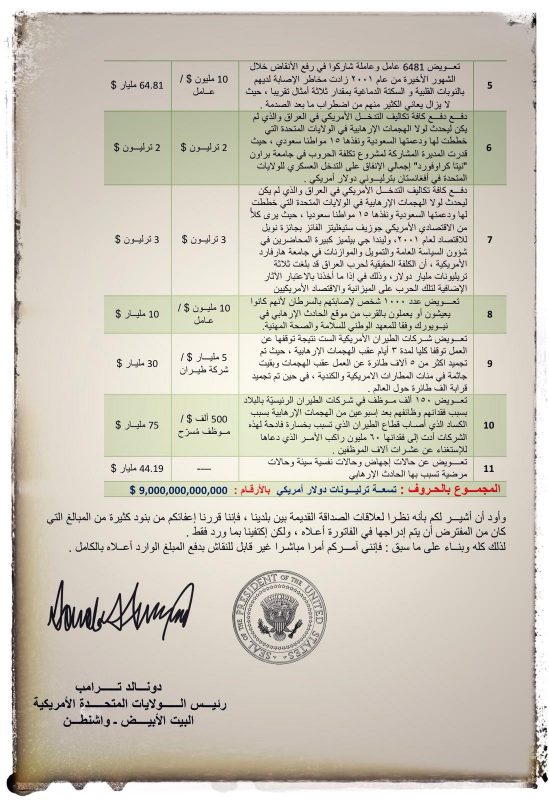 تعـويض 6481 عامل وعاملة شاركوا في رفع الأنقاض خلال
الشهور الأخيرة من عام ٢٠٠١ زادت مخاطر الإصابة لديهم
بالنوبات القلبية و السكتة الدماغية بمقدار ثلاثة أمثال تقريبا ، حيث
لا يزال يعاني الكثير منهم من اضطراب ما بعد الصدمة .
5
10 مليون $ /
عـامل
64.81 مليار $
دفـع دفع كافة تكاليف التدخـل الأمريكي في العراق والذي لم
يكن ليحدث لولا الهجمات الإرهابية في الولايات المتحدة التي
خططت لها ودعمتها السعودية ونفذها ١٥ مواطنا سعودي ، حيث
قدرت المديرة المشاركة لمشروع تكلفة الحروب في جامعة براون
"نيتا كراوفورد" إجمالي الإنفاق على التدخل العسكري للولايات
المتحدة في أفغانستان بترليـوني دولار أمريكي .
6
2 ترليـون $
2 ترليـون $
دفـع كافة تكاليف التدخـل الأمريكي في العراق والذي لم يكن
ليحدث لولا الهجمات الإرهابية في الولايات المتحدة التي خططت
لها ودعمتها السعودية ونفذها ١٥ مواطنا سعوديا ، حيث يرى كلاً
من الاقتصادي الأمريكي جوزيف ستيغليتز الفائز بجائزة نوبل
للاقتصاد لعام ٢٠٠١، وليندا جي بيلميز كبيرة المحاضرين في
شؤون السياسة العامة والتمويل والموازنات في جامعة هارفارد
الأمريكية ، أن الكلفة الحقيقية لحرب العراق قد بلغت ثلاثة
تريليونات مليار دولار، وذلك في إذا ما أخذنا بالاعتبار الآثار
الإضافية لتلك الحرب على الميزانية والاقتصاد الأمريكيين
7
3 ترليـون $
3 ترليـون $
تعـويض عدد ١٠٠٠ شخص لإصابتهم بالسرطان لأنهم كانوا
يعيشون أو يعملون بالقرب من موقع الحادث الإرهابي في
نيـويورك وفقا للمعهد الوطني للسلامة والصحة المهنية.
8
10 مليـون $ /
عـامل
10 مليـار $
تعـويض شـركات الطيران الأمريكية الست نتيجة توقفها عن
العمل توقفا كليا لمدة ٣ أيام عقب الهجمات الإرهابية ، حيث تم
تجميد أكثر من ٥ آلاف طائرة عن العمل عقب الهجمات وبقيت
جاثمة في منات المطارات الأمريكية والكندية ، في حين تم تجميد
قرابة الف طائرة حول العالم .
9
5 مليـار $ /
شركة طيـران
30 مليار $
تعـويض ١٥٠ ألف مـوظف في شركات الطيران الرئيسية بالبلاد
بسبب فقدانهم وظائفهم بعد إسبوعين من الهجمات الإرهابية بسبب
الكساد الذي أصاب قطاع الطيران الذي تسبب بخسارة فادحة لهذه
الشركات أدت إلى فقدانها ٦٠ مليون راكب الأمـر الذي دعاها
للإستغناء عن عشرات آلاف الموظفين .
10
500 ألف $ /
مـوظف مُسرّح
75 مليـار $
تعـويض عن حالات إجهاض وحالات نفسية سيئة وحالات
مرضية تسبب بها الحادث الإرهابي
11
----
44.19 مليار $
المجمـــوع بالحروف : تسعـة ترليـونات دولار أمريكي بالأرقـام : 9,000,000,000,000 $
وأود أن أشيـر لكم بأنه نظرا لعلاقات الصداقة القديمة بين بلدينا ، فإننا قررنا إعفائكم من بنود كثيرة من المبالغ التي
كان من المفترض أن يتم إدراجها في الفاتورة أعلاه ، ولكن إكتفينا بما ورد فقط .
لذلك كله وبناء على ما سبق : فإنني آمـركم أمرا مباشرا غير قابل للنقاش بدفع المبلغ الوارد أعـلاه بالكامل .
SEAL OF THE PRESIDENT OF THE UNITED STATES
دونـالد تــرامب
رئيـس الــولايات المتحــدة الأمريكية
البيت الأبيــض ـ واشنطـن